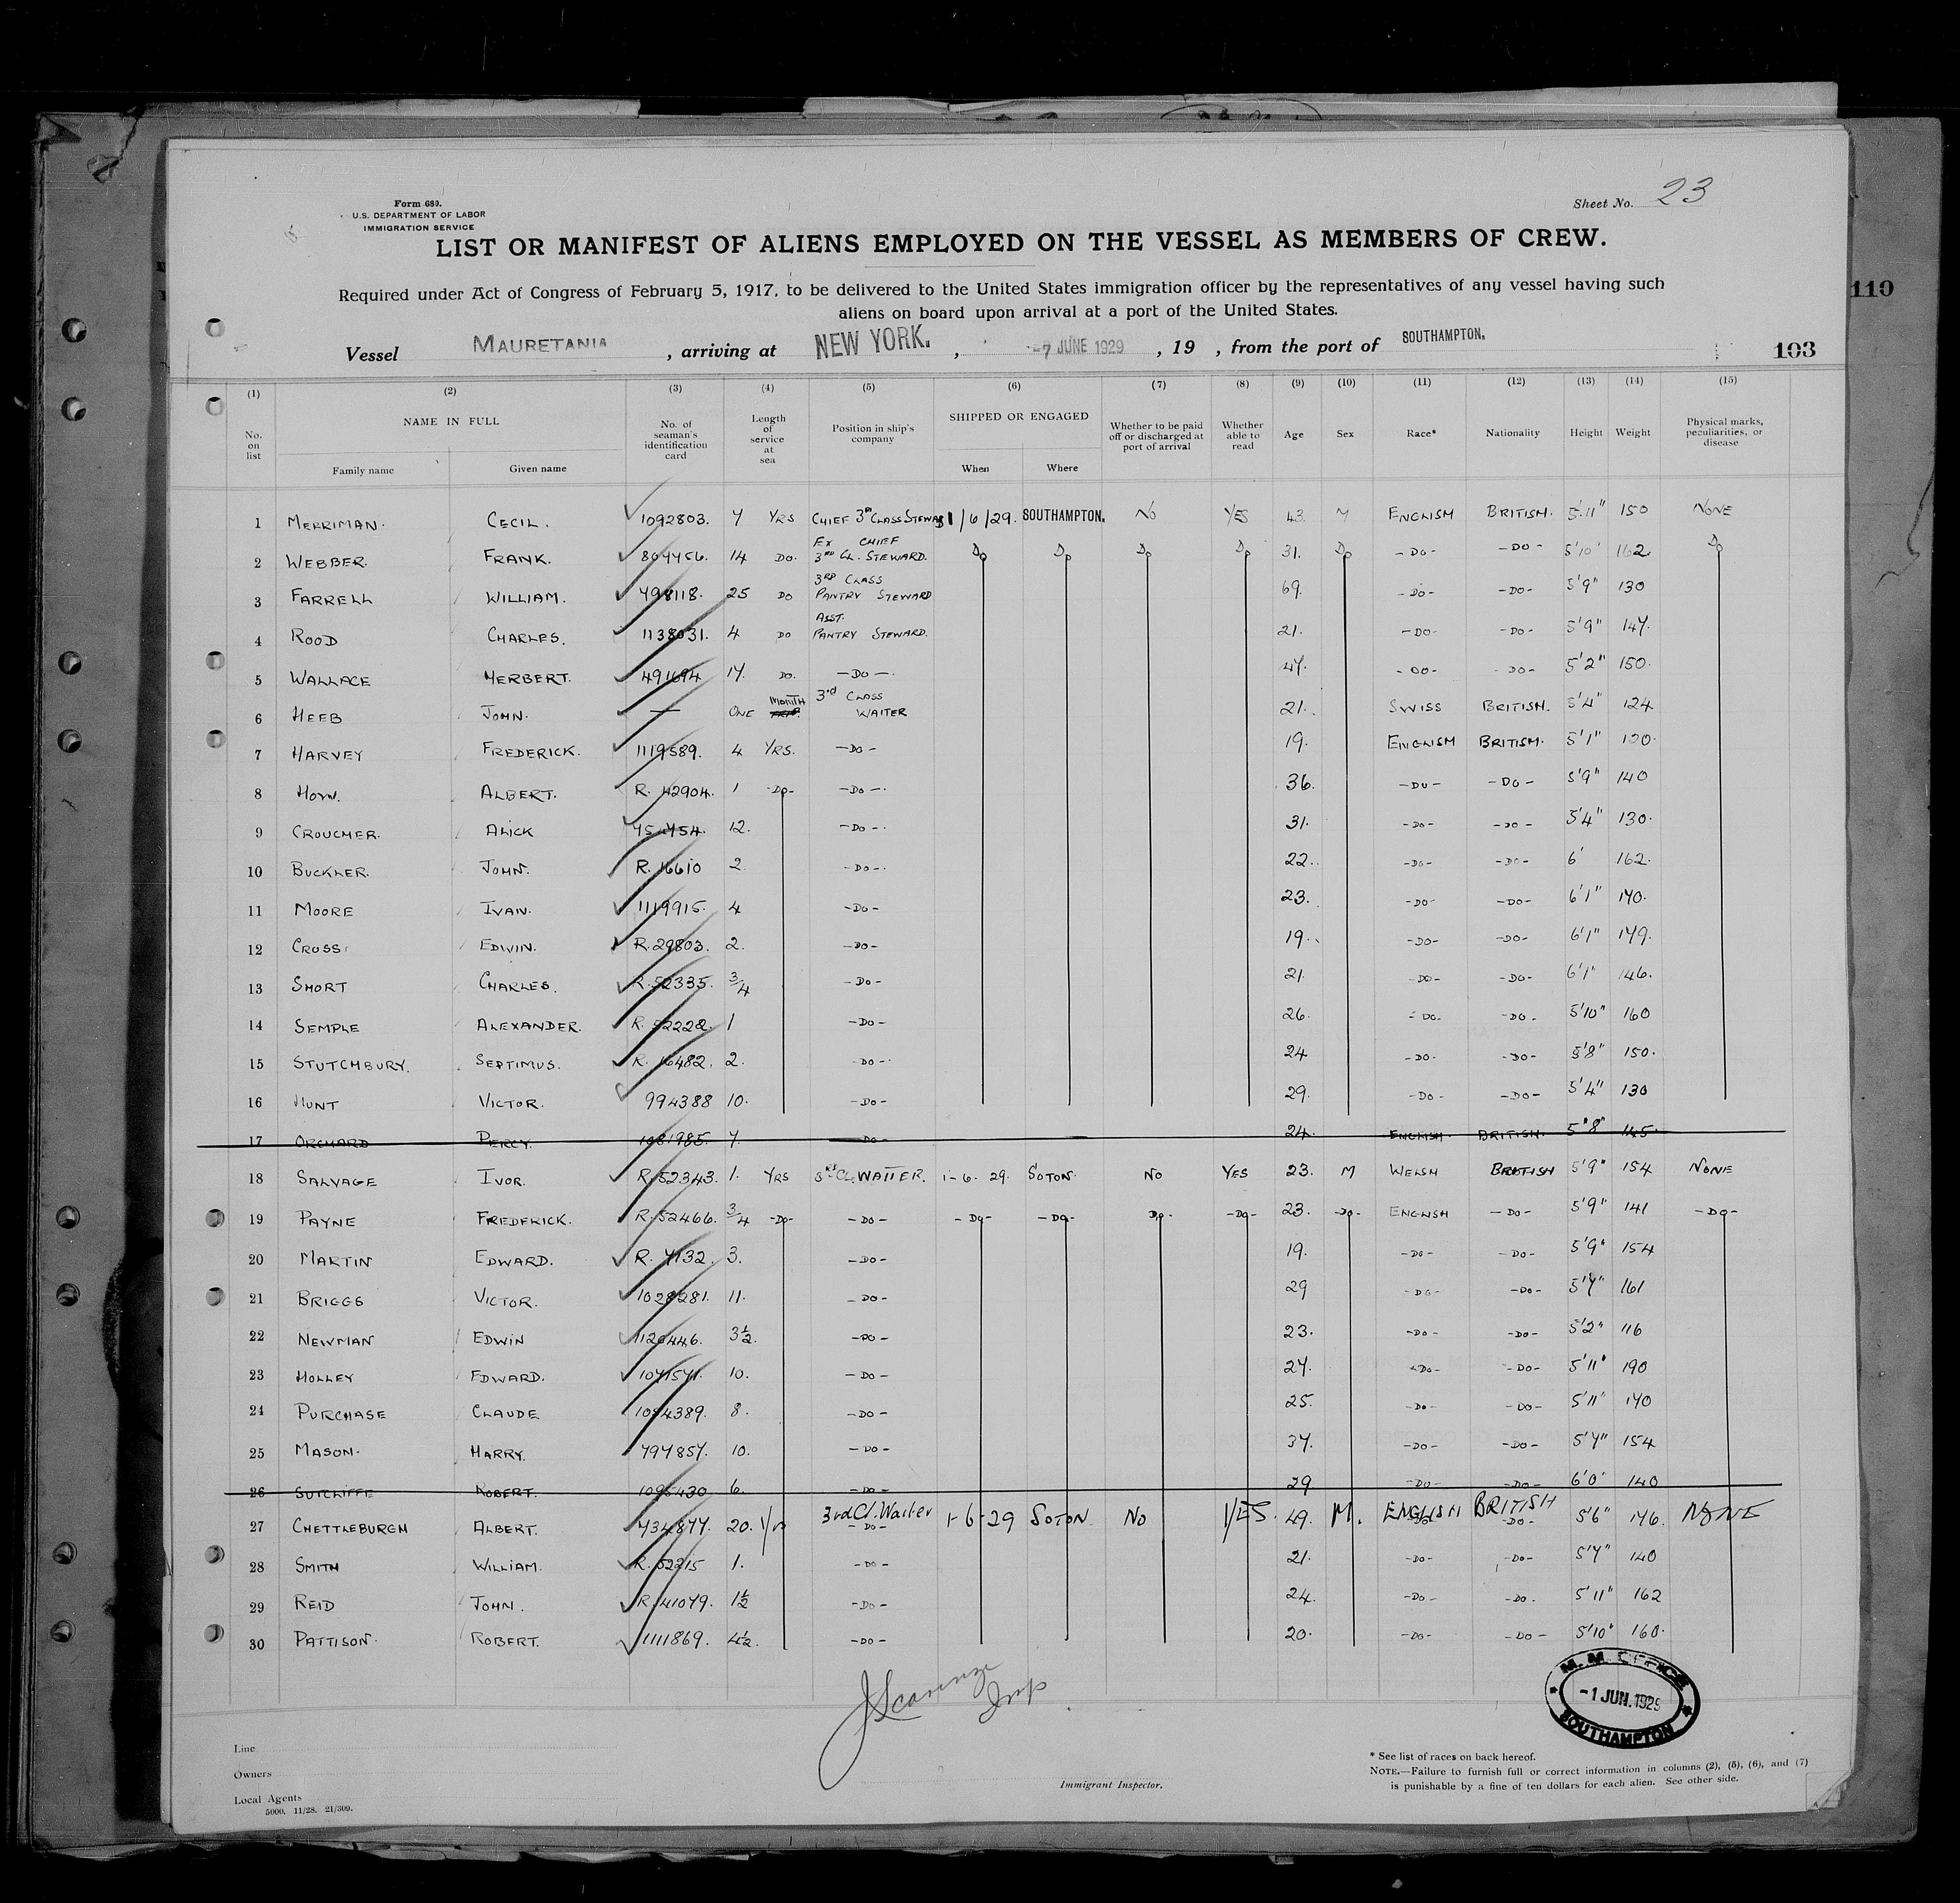 Form 680.
U.S. DEPARTMENT OF LABOR
IMMIGRATION SERVICE
Sheet No. 23
LIST OR MANIFEST OF ALIENS EMPLOYED ON THE VESSEL AS MEMBERS OF CREW.
Required under Act of Congress of February 5, 1917, to be delivered to the United States immigration officer by the representatives of any vessel having such
aliens on board upon arrival at a port of the United States.
110
Vessel MAURETANIA, arriving at NEW YORK., -7 JUNE 1929, 19 , from the port of SOUTHAMPTON. 103
(1) (2) (3) (4) (5) (6) (7) (8) (9) (10) (11) (12) (13) (14) (15)
No. on list NAME IN FULL Family name Given name No. of seaman's identification card Length of service at sea Position in ship's company SHIPPED OR ENGAGED When Where Whether to be paid off or discharged at port of arrival Whether able to read Age Sex Race* Nationality Height Weight Physical marks, peculiarities, or disease
1 MERRIMAN. CECIL. 1092803. 7 YRS CHIEF 3rd CLASS STEWARD 1/6/29. SOUTHAMPTON. NO YES 43. M ENGLISH BRITISH. 5'11" 150 NONE
2 WEBBER. FRANK. 804456. 14 DO. EX CHIEF 3RD CL. STEWARD. Do Do Do Do 31. Do -DO- -DO- 5'10" 162 Do
3 FARRELL WILLIAM. 498118. 25 DO 3RD CLASS PANTRY STEWARD 69. -DO- -DO- 5'9" 130
4 ROOD CHARLES. 1138031. 4 DO ASST. PANTRY STEWARD. 21. -DO- -DO- 5'9" 147.
5 WALLACE HERBERT. 491694 17. DO. -DO-. 47. -DO- -DO- 5'2" 150.
6 HEEB JOHN. — ONE MONTH 3rd CLASS WAITER 21. SWISS BRITISH. 5'4" 124
7 HARVEY FREDERICK. 1119589. 4 YRS. -DO- 19. ENGLISH BRITISH. 5'1" 120.
8 ALBERT. R. 42904. 1 -DO- -DO-. 36. -DO- -DO- 5'9" 140
9 CROUCHER. ALICK 12. -DO-. 31. -DO- -DO- 5'4" 130.
10 BUCKLER. JOHN. R. 16610 2 -DO-. 22. -DO- -DO- 6' 162.
11 MOORE IVAN. 1119915. 4 -DO- 23. -DO- -DO- 6'1" 170.
12 CROSS EDWIN. R.29803. 2. -DO- 19. -DO- -DO- 6'1" 179.
13 SHORT CHARLES. R.52335. 3/4 -DO- 21. -DO- -DO- 6'1" 146.
14 SEMPLE ALEXANDER. R. 52228. 1 -DO- 26. -DO- -DO- 5'10" 160
15 STUTCHBURY. SEPTIMUS. R. 16482. 2. -DO-. 24 -DO- -DO- 5'8" 150.
16 HUNT VICTOR. 994388 10. -DO- 29. -DO- -DO- 5'4" 130
17 ORCHARD PERCY. 1081985. 7. -DO- 24. ENGLISH. BRITISH. 5'8" 145.
18 SALVAGE IVOR. R.52343. 1. YRS 3RD CL. WAITER. 1-6-29. SOTON. NO YES 23. M WELSH BRITISH 5'9" 154 NONE
19 PAYNE FREDERICK. R.52466. 3/4 -DO- -DO- -DO- -DO- DO- -DO- 23. -DO- ENGLISH -DO- 5'9" 141 -DO-
20 MARTIN EDWARD. R. 7132. 3. -DO- 19. -DO- -DO- 5'9" 154
21 BRIGGS VICTOR. 1028281. 11. -DO- 29 -DO- -DO- 5'7" 161
22 NEWMAN EDWIN 1120446. 3½. -DO- 23. -DO- -DO- 5'2" 116
23 HOLLEY EDWARD. 1071571. 10. -DO- 27. -DO- -DO- 5'11" 190
24 PURCHASE CLAUDE 1084389. 8. -DO- 25. -DO- -DO- 5'11" 170
25 MASON. HARRY. 797857. 10. -DO- 37. -DO- -DO- 5'7" 154
26 SUTCLIFFE ROBERT. 1095430 6. -DO- 29 -DO- -DO- 6'0" 140
27 CHETTLEBURGH ALBERT. 734877. 20. Yrs 3rd Cl. Waiter -DO- 1-6-29 SOTON. NO YES. 49. M. ENGLISH BRITISH -DO- 5'6" 146. NONE
28 SMITH WILLIAM. R.52215 1. -DO- 21. -DO- -DO- 5'7" 140
29 REID JOHN. R.41079. 1½ -DO- 24. -DO- -DO. 5'11" 162
30 PATTISON. ROBERT. 1111869. 4½. -DO- 20. -DO- -DO- 5'10" 160.
M. M. OFFICE
-1 JUN. 1929
SOUTHAMPTON
Line
Owners
Local Agents
5000. 11/28. 21/309.
Immigrant Inspector.
* See list of races on back hereof.
NOTE.—Failure to furnish full or correct information in columns (2), (5), (6), and (7)
is punishable by a fine of ten dollars for each alien. See other side.